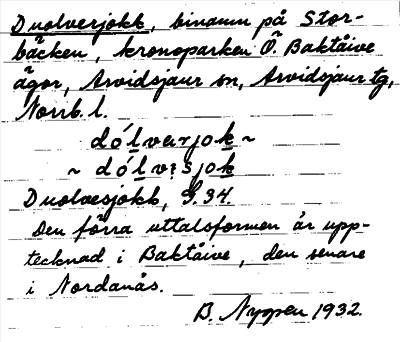 Duolverjokk, binamn på Stor-
bäcken, kronoparken Ö. Baktåive
ägor, Arvidsjaur sn, Arvidsjaur tg,
Norrb. l.
dó́lvarjok ~
~ dó́lvɜšjok
Duolvesjokk, G. 34.
Den förra uttalsformen är upp-
tecknad i Baktåive, den senare
i Nordanås.
B. Nyman 1932.